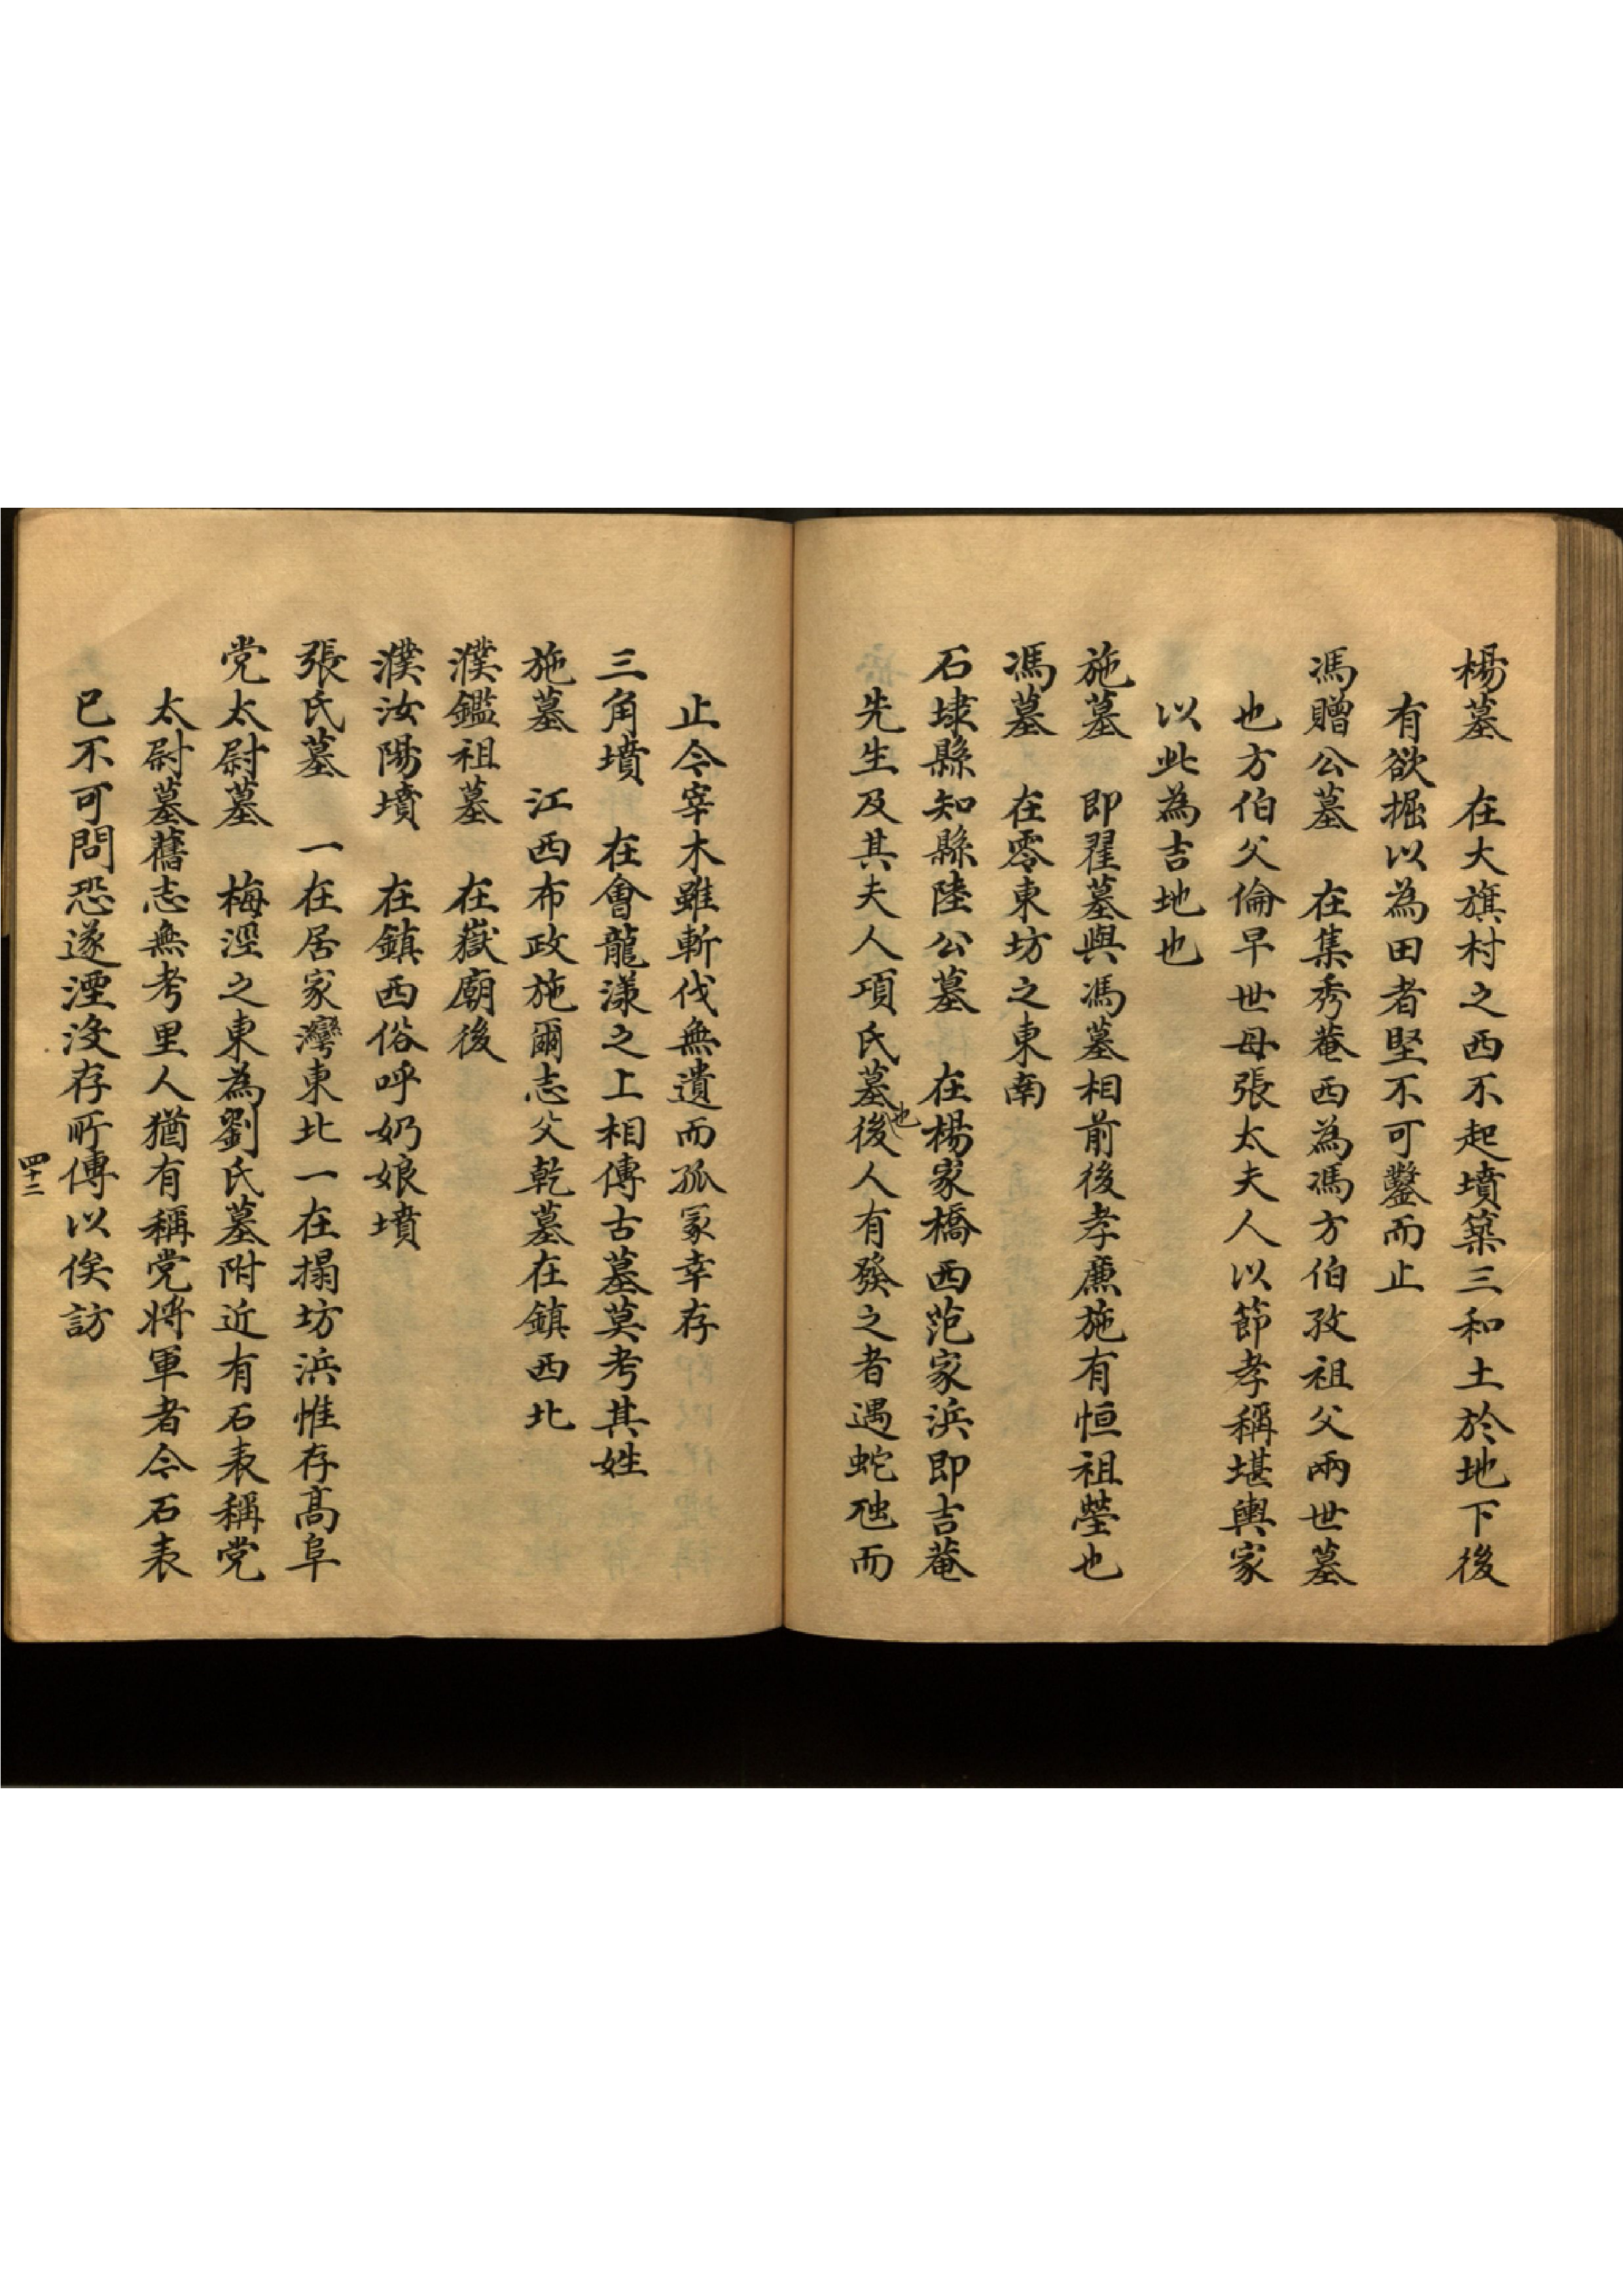 楊墓　在大旗村之西不起墳築三和土於地下後
有欲掘以為田者堅不可鑿而止
馮贈公墓　在集秀菴西為馮方伯孜祖父兩世墓
也方伯父倫早世母張太夫人以節孝稱堪輿家
以此為吉地也
施墓　即翟墓與馮墓相前後孝廉施有恒祖塋也
馮墓　在零東坊之東南
石埭縣知縣陸公墓　在楊家橋西范家浜即吉菴
先生及其夫人項氏墓也後人有發之者遇蛇虺而
止今宰木雖斬伐無遺而孤冢幸存
三角墳　在會龍漾之上相傳古墓莫考其姓
施墓　江西布政施爾志父乾墓在鎮西北
濮鑑祖墓　在嶽廟後
濮汝陽墳　在鎮西俗呼奶娘墳
張氏墓　一在居家灣東北一在搨坊浜惟存高阜
党太尉墓　梅涇之東為劉氏墓附近有石表稱党
太尉墓舊志無考里人猶有稱党將軍者今石表
已不可問恐遂湮没存所傳以俟訪
四十二